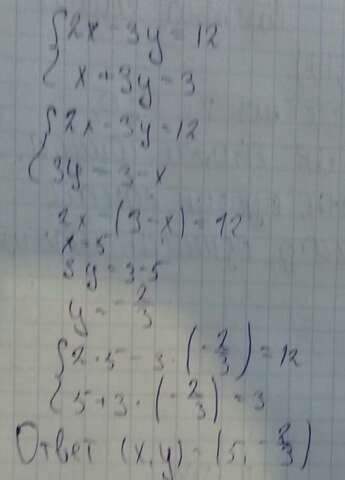 {2x - 3y = 12
x + 3y = 3
{2x - 3y = 12
3y = 3 - x
2x - (3 - x) = 12
x = 5
3y = 3 - 5
y = -2/3
{2 · 5 - 3 · (-2/3) = 12
5 + 3 · (-2/3) = 3
Ответ (x, y) = (5, -2/3)